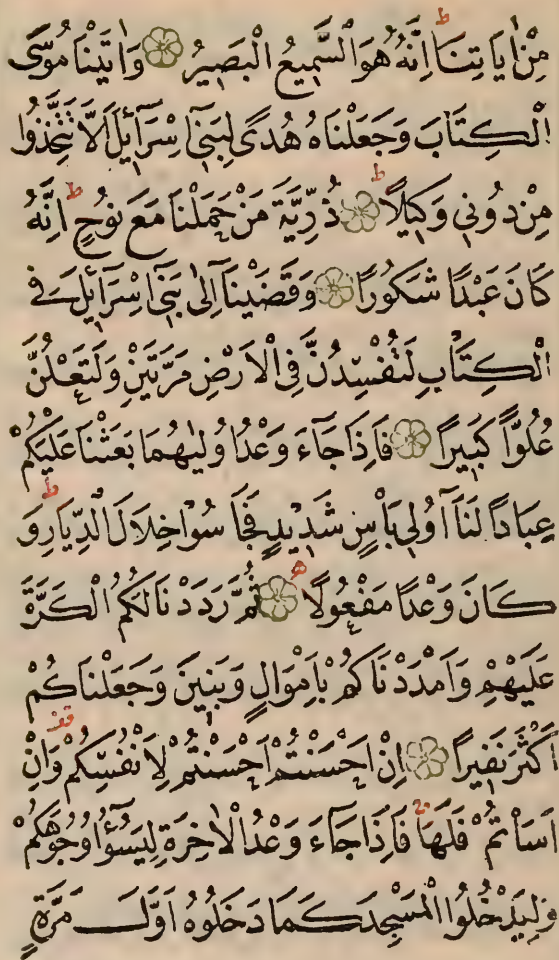 مِنْ اٰيَاتِنَا ط اِنَّهُ هُوَ السَّمِيعُ الْبَصِيرُ ۝ وَاٰتَيْنَا مُوسَى
الْكِتَابَ وَجَعَلْنَاهُ هُدًى لِبَنِٓي اِسْرَآئِلَ اَلَّا تَتَّخِذُوا
مِنْ دُونِي وَكِيلًا ط ۝ ذُرِّيَّةَ مَنْ حَمَلْنَا مَعَ نُوحٍ ط اِنَّهُ
كَانَ عَبْدًا شَكُورًا ۝ وَقَضَيْنَآ اِلٰى بَنِٓي اِسْرَآئِلَ فِي
الْكِتَابِ لَتُفْسِدُنَّ فِي الْاَرْضِ مَرَّتَيْنِ وَلَتَعْلُنَّ
عُلُوًّا كَبِيرًا ۝ فَاِذَا جَآءَ وَعْدُ اُولٰيهُمَا بَعَثْنَا عَلَيْكُمْ
عِبَادًا لَنَآ اُولِي بَاْسٍ شَدِيدٍ فَجَاسُوا خِلَالَ الدِّيَارِ ط وَ
كَانَ وَعْدًا مَفْعُولًا ه ۝ ثُمَّ رَدَدْنَا لَكُمُ الْكَرَّةَ
عَلَيْهِمْ وَاَمْدَدْنَاكُمْ بِاَمْوَالٍ وَبَنِينَ وَجَعَلْنَاكُمْ
اَكْثَرَ نَفِيرًا ۝ اِنْ اَحْسَنْتُمْ اَحْسَنْتُمْ لِاَنْفُسِكُمْ قف وَاِنْ
اَسَاْتُمْ فَلَهَا ط فَاِذَا جَآءَ وَعْدُ الْاٰخِرَةِ لِيَسُٓؤُا وُجُوهَكُمْ
وَلِيَدْخُلُوا الْمَسْجِدَ كَمَا دَخَلُوهُ اَوَّلَ مَرَّةٍ